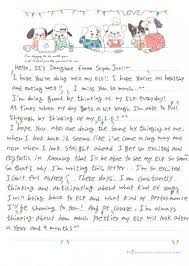 LOVE
Hello, It's Donghae from Super Junior
I hope you're doing well my ELF! I hope you're all healthy
and eating well! I miss you so much~
I'm doing good by thinking of my ELF everyday!!
At times when my day gets a bit tough, I'm able to pull
through by thinking of my E.L.F!
I hope you are doing the same by thinking of me.
when I look back, it seems like I've come a long way and
now when I look straight ahead I get so excited and
ecstatic in knowing that I'll be able to see my ELF so soon.
So that's why I'm writing this letter~ I'm so excited
I can't fall asleep! These days, I am constantly
thinking and anticipating about what kind of songs
I'll bring back to ELF and what kind of performance
I'll be showing to you! And of course I'm always
thinking about how much prettier my ELF will look after
a year and 9 months!